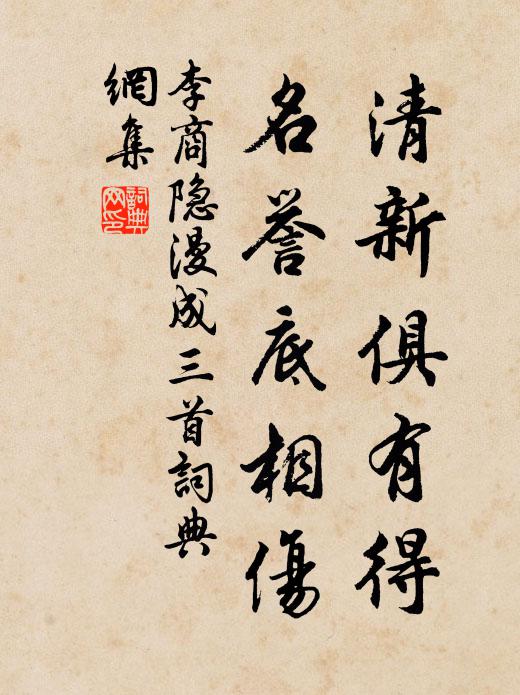 清新俱有得
名誉底相傷
李商隐漫成三首詞典
網集
詞典
网印